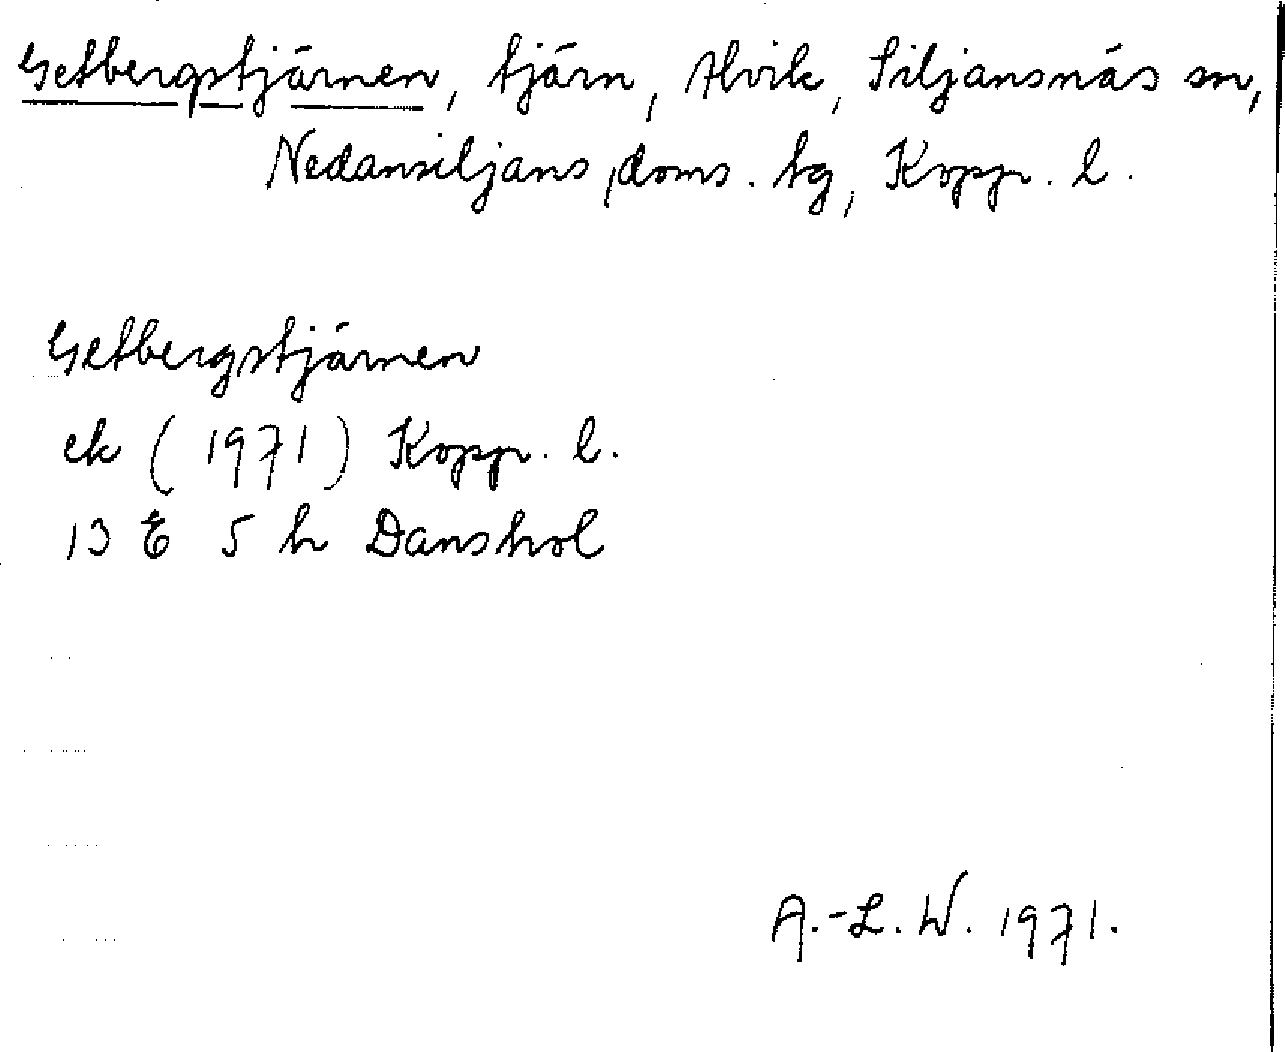 Getbergstjärnen, tjärn, Alvik, Siljansnäs sn,
Nedansiljans doms. tg, Kopp. l.
Getbergstjärnen
ek (1971) Kopp. l.
13 E 5 h Danshol
A.-L. W. 1971.